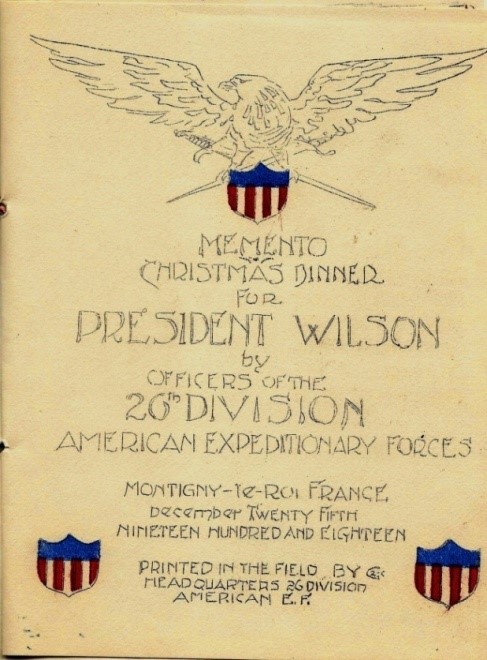 MEMENTO
CHRISTMAS DINNER
FOR
PRESIDENT WILSON
by
OFFICERS OF THE
26th DIVISION
AMERICAN EXPEDITIONARY FORCES
MONTIGNY-le-ROI FRANCE
December TWENTY FIFTH
NINETEEN HUNDRED AND EIGHTEEN
PRINTED IN THE FIELD BY
HEADQUARTERS 26 DIVISION
AMERICAN E.F.